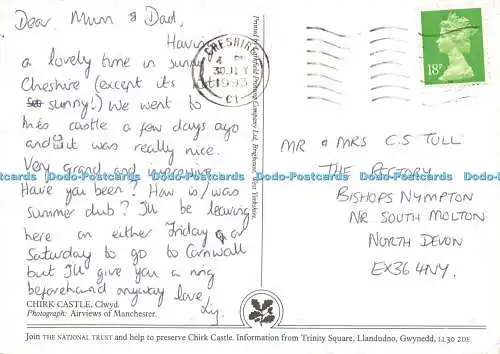 Dear Mum & Dad,
Having
a lovely time in sunny
Cheshire (except its not
sunny!) We went to
this castle a few days ago
and it was really nice.
Very grand and
Have you been? How is/was
summer club? I'll be leaving
here on either Friday or
Saturday to go to Cornwall
but I'll give you a ring
beforehand anyway love
CHIRK CASTLE, Clwyd.
Photograph: Airviews of Manchester.
CHESHIRE
4 PM
30 JLY
1993
C1
18P
MR & MRS C.S TULL
THE RECTORY
BISHOPS NYMPTON
NR SOUTH MOLTON
NORTH DEVON
EX36 4NY.
Dodo-Postcards Dodo-Postcards Dodo-Postcards Dodo-Postcards Dodo-Postcards Dodo-Postcards
Join THE NATIONAL TRUST and help to preserve Chirk Castle. Information from Trinity Square, Llandudno, Gwynedd, LL30 2DE.